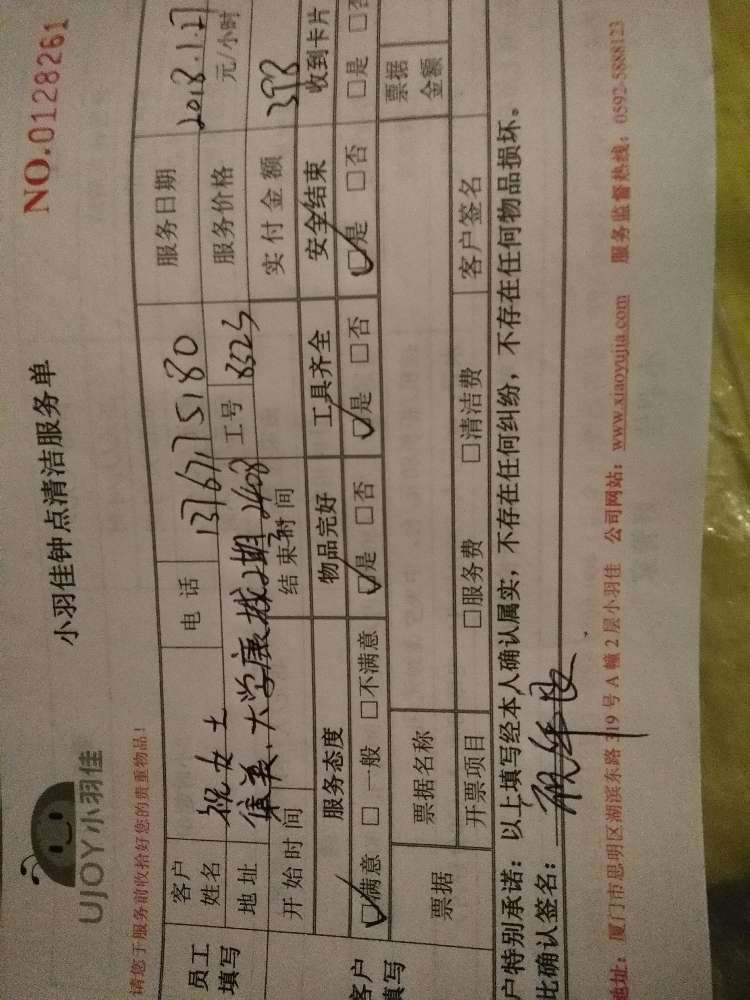 UJOY小羽佳
小羽佳钟点清洁服务单
NO.0128261
请您于服务前收拾好您的贵重物品!
员工填写 客户姓名 祝女士 电话 13767175180 服务日期 2018.1.27
地址 大学康城2期2408 工号 8323 服务价格 元/小时
开始时间 结束时间 实付金额 398
客户填写 服务态度 物品完好 工具齐全 安全结束 收到卡片
☑满意 □一般 □不满意 ☑是 □否 ☑是 □否 ☑是 □否 □是 □否
票据 票据名称 票据金额
开票项目 □服务费 □清洁费 客户签名
户特别承诺:以上填写经本人确认属实,不存在任何纠纷,不存在任何物品损坏。
此确认签名:
地址:厦门市思明区湖滨东路319号A幢2层小羽佳 公司网站:www.xiaoyujia.com 服务监督热线:0592-5888123